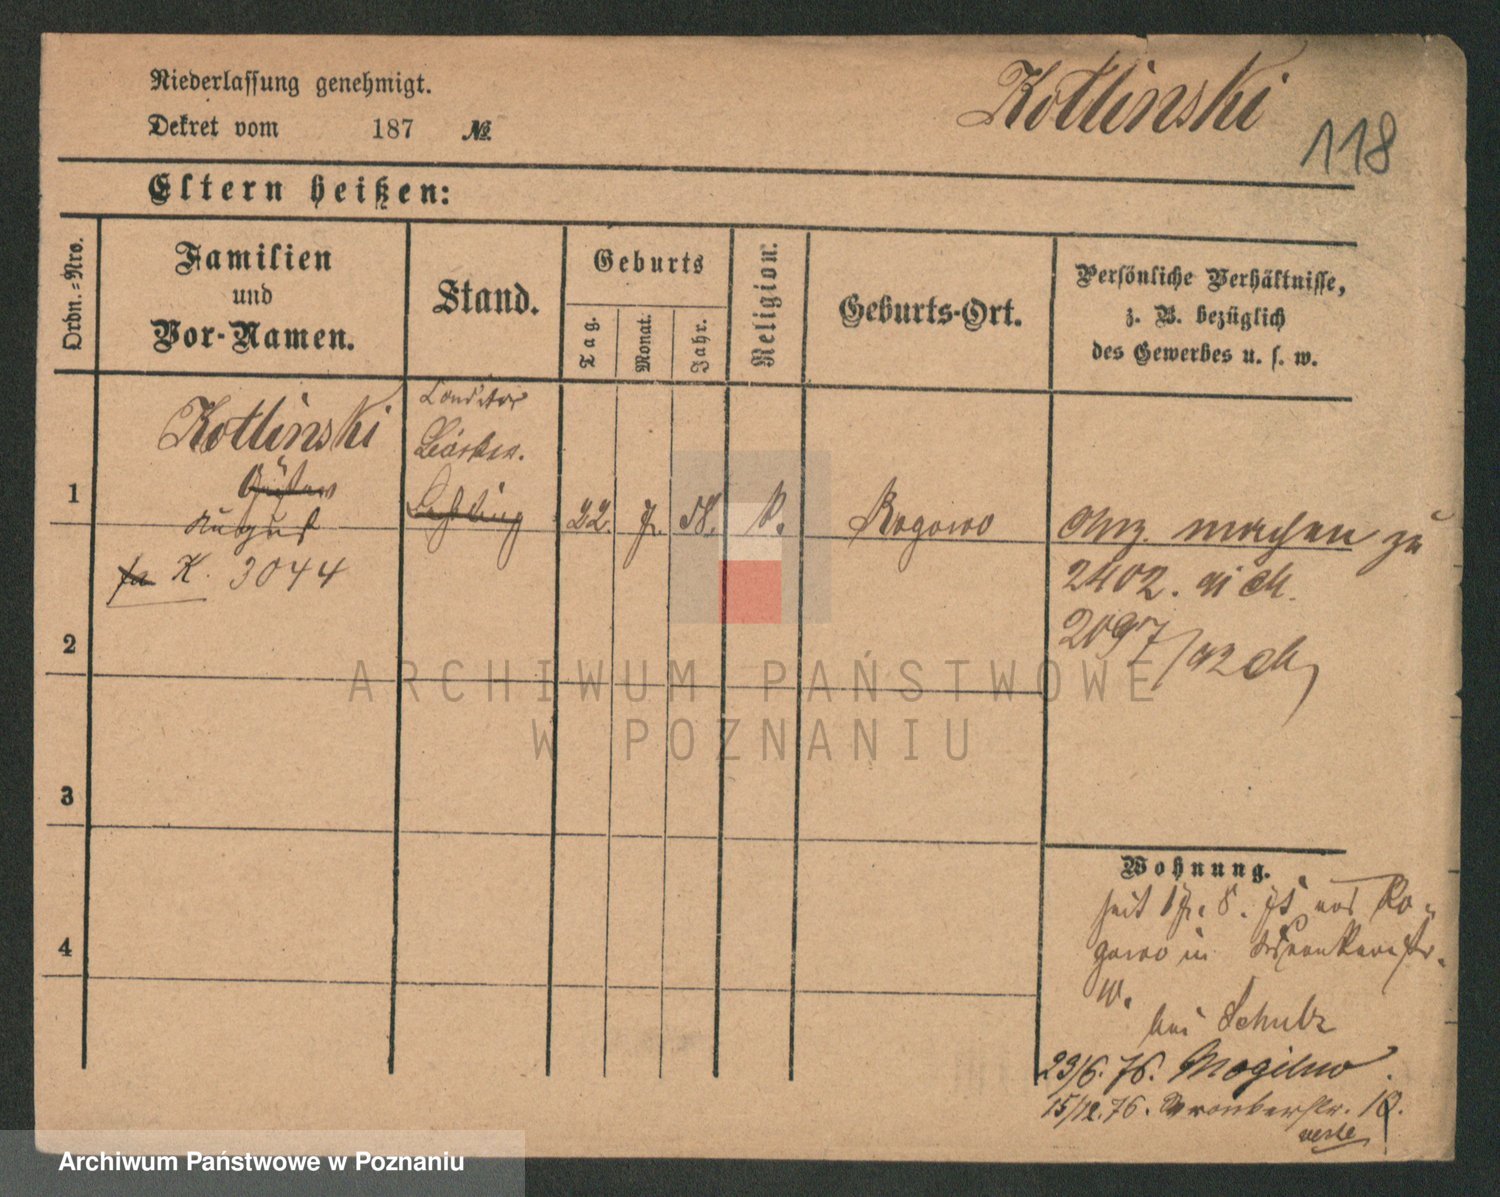 Niederlassung genehmigt.
Dekret vom 187 №
Kotlinski
118
Eltern heißen:
Ordn.-Nro.
Familien
und
Vor-Namen.
Stand.
Geburts
Tag.
Monat.
Jahr.
Religion.
Geburts-Ort.
Persönliche Verhältnisse,
z. B. bezüglich
des Gewerbes u. s. w.
1
Kotlinski
Gustav
August
Conditor
Lehrling
22. 7. 58. k.
Rogowo
machen zu
K. 3044
2402.
2097/92
2
3
4
Wohnung.
seit 17. 8. 75 aus Ro-
gowo in
bei Schulz
29/6. 76. Mogilno
15/12. 76. 18.
verte
ARCHIWUM PAŃSTWOWE
W POZNANIU
Archiwum Państwowe w Poznaniu